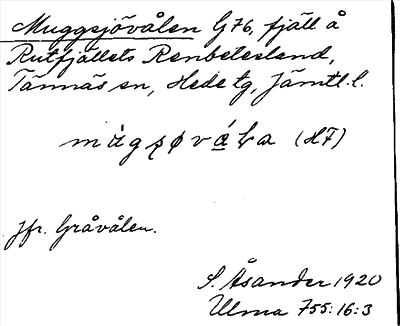 Muggsjövålen G76, fjäll å
Rutfjällets Renbetesland,
Tännäs sn, Hede tg, Jämtl. l.
(HF)
Jfr. Gråvålen.
S. Åsander 1920
Ulma 755:16:3